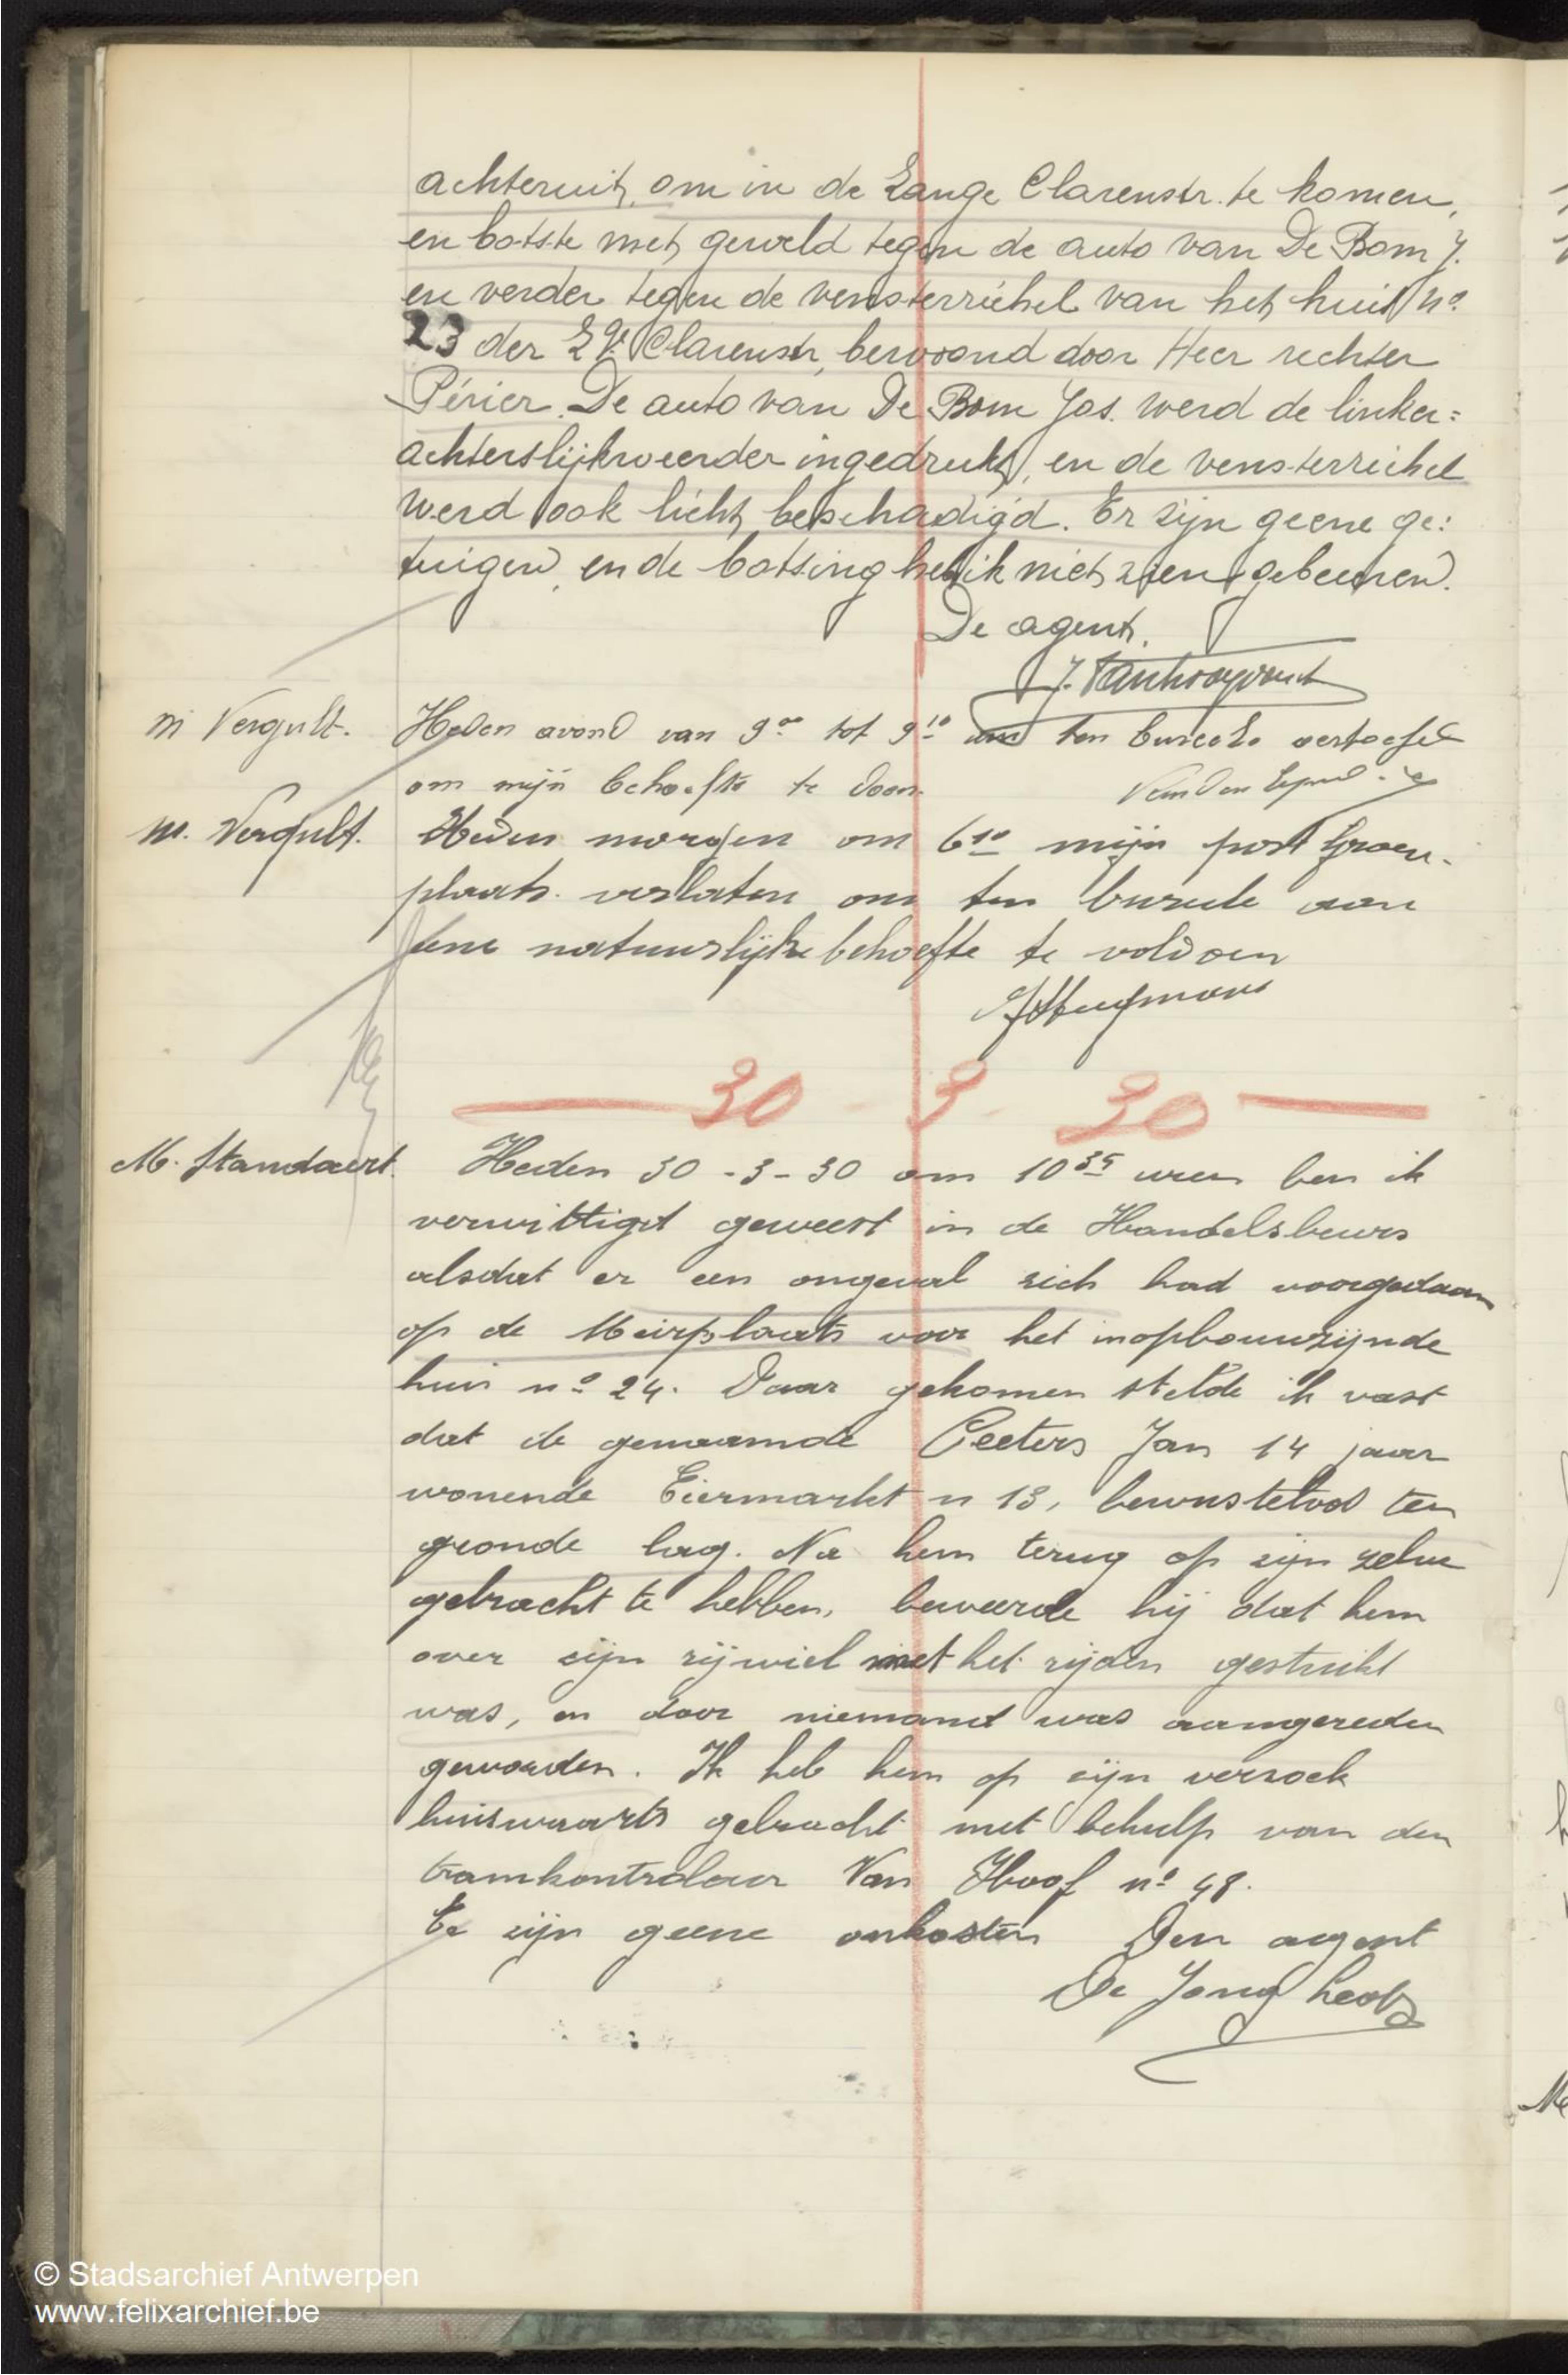 achteruit, om in de Lange Clarenstr. te komen,
en botste met geweld tegen de auto van De Bom J.
en verder tegen de vensterrichel van het huis nº
23 der Lge Clarenstr, bewoond door Heer rechter
Périer. De auto van De Bom Jos. werd de linker=
achterslijkweerder ingedrukt, en de vensterrichel
werd ook licht beschadigd. Er zijn geene ge:
tuigen, en de botsing heb ik niet zien gebeuren.
De agent.
m Vergult. Heden avond van 9°° tot 9¹⁰ ten bureele vertoefd
om mijn behoefte te doen.
m. Vergult. Heden morgen om 6¹⁰ mijn post Groen-
plaats verlaten om ten bureele aan
eene natuurlijke behoefte te voldoen
30 - 3 - 30
M. Standaert. Heden 30-3-30 om 10³⁵ uren ben ik
verwittigd geweest in de Handelsbeurs
alsdat er een ongeval zich had voorgedaan
op de Meirplaats voor het inopbouwzijnde
huis nº 24. Daar gekomen stelde ik vast
dat de genaamde Peeters Jan 14 jaar
wonende Eiermarkt n 13, bewusteloos ten
gronde lag. Na hem terug op zijn zelve
gebracht te hebben, beweerde hij dat hem
over zijn rijwiel met het rijden gestruikt
was, en door niemand was aangereden
geworden. Ik heb hem op zijn verzoek
huiswaarts gebracht met behulp van den
tramkontroleur Van Hoof nº 48.
Er zijn geene onkosten Den agent
De Jong
© Stadsarchief Antwerpen
www.felixarchief.be